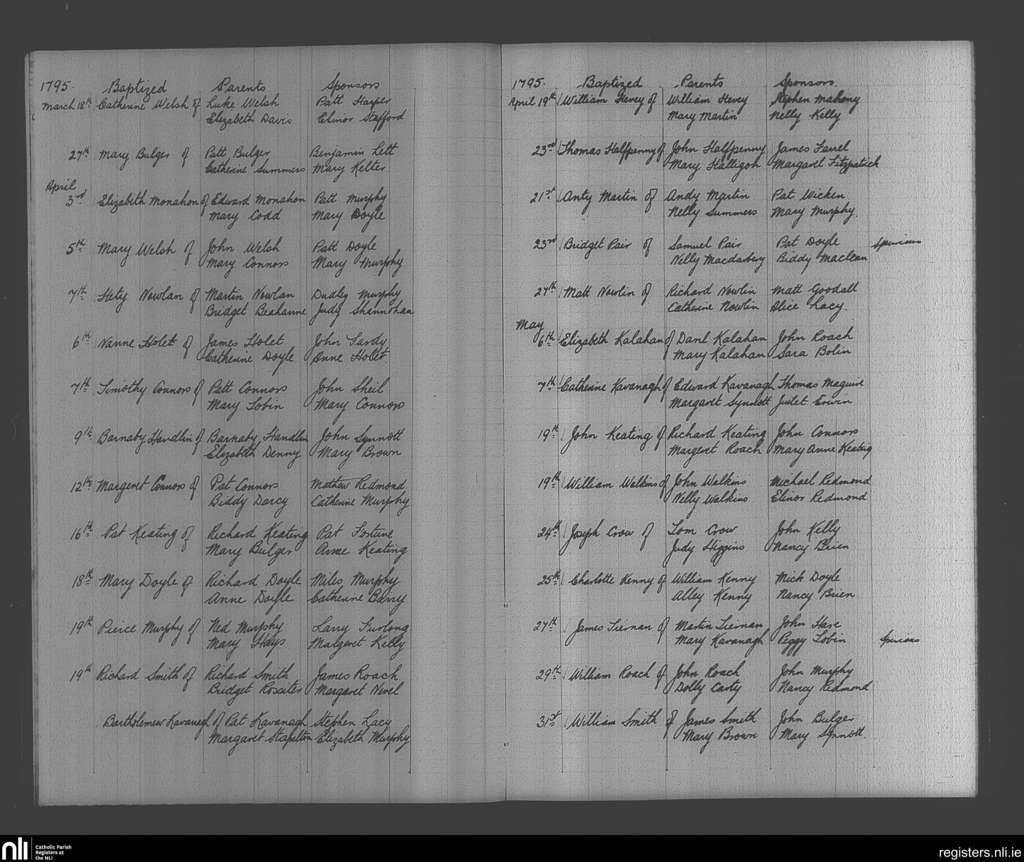 1795 Baptized Parents Sponsors
March 18th Catherine Welsh of Luke Welsh Patt Harper
Elizabeth Davis Elinor Stafford
27th Mary Bulger of Patt Bulger Benjamin Lett
Catherine Summers Mary Kelter
April
3rd Elizabeth Monahon of Edward Monahon Patt Murphy
Mary Codd Mary Doyle
5th Mary Welsh of John Welsh Patt Doyle
Mary Connors Mary Murphy
7th Nowlan of Martin Nowlan Dudley Murphy
Bridget Beahanne Judy Shannahan
6th Nanne Holet of James Holet John
Catherine Doyle Anne Holet
7th Timothy Connors of Patt Connors John Sheil
Mary Tobin Mary Connors
9th Barnaby Handlin of Barnaby Handlin John Synnott
Elizabeth Denny Mary Brown
12th Margeret Connors of Pat Connors Mathew Redmond
Biddy Darcy Catherine Murphy
16th Pat Keating of Richard Keating Pat Fortune
Mary Bulger Anne Keating
18th Mary Doyle of Richard Doyle Miles Murphy
Anne Doyle Catherine Barry
19th Pierce Murphy of Ned Murphy Larry Furlong
Mary Hays Margeret Kelly
19th Richard Smith of Richard Smith James Roach
Bridget Rositer Margaret Nevel
Bartholemew Kavanagh of Pat Kavanagh Stephen Lacy
Margaret Stapelton Elizabeth Murphy
1795 Baptized Parents Sponsors
April 19th William Hevey of William Hevey Stephen Mahony
Mary Martin Nelly Kelly
23rd Thomas Halfpenny of John Halfpenny James Farrel
Mary Halligon Margaret Fitzpatrick
21st Anty Martin of Andy Martin Pat Wicken
Nelly Summers Mary Murphy.
23rd Bridget Pair of Samuel Pair Pat Doyle Spurious
Nelly Macdaboy Biddy Maclean
27th Matt Nowlin of Richard Nowlin Matt Goodall
Catherine Nowlin Alice Lacy.
May
6th Elizabeth Kalahan of Danl Kalahan John Roach
Mary Kalahan Sara Bolin
7th Catherine Kavanagh of Edward Kavanagh Thomas Maguire
Margaret Synnott Judet Erwin
19th John Keating of Richard Keating John Connors
Margeret Roach Mary Anne Keating
19th William Walkins of John Walkins Michael Redmond
Nelly Walkins Elinor Redmond
24th Joseph Crow of Tom Crow John Kelly
Judy Higgins Nancy Brien
25th Charlotte Kenny of William Kenny Mick Doyle
Alley Kenny Nancy Brien
27th James Tiernan of Martin Tiernan John Hare
Mary Kavanagh Peggy Tobin Spurious
29th William Roach of John Roach John Murphy
Dolly Carty Nancy Redmond
31st William Smith of James Smith John Bulger
Mary Brown Mary Synnott.
nli Catholic Parish
Registers at
the NLI
registers.nli.ie